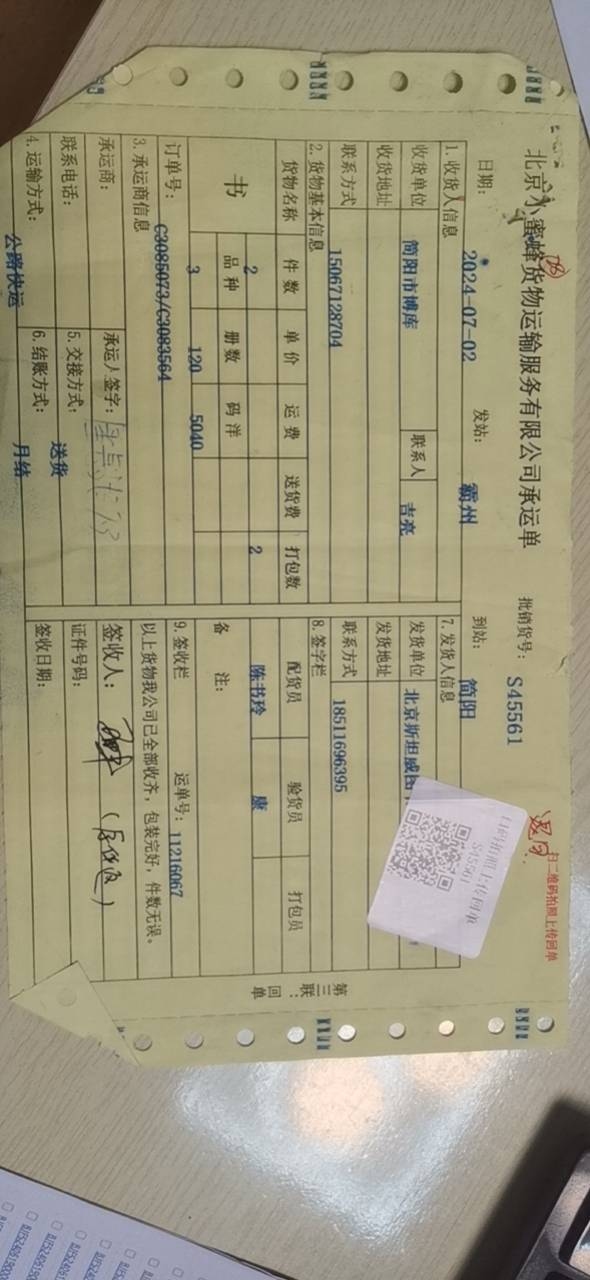 北京小蜜蜂货物运输服务有限公司承运单
批销货号： S45561
扫二维码拍照上传回单
退回
日期： 2024-07-02 发站： 霸州 到站： 简阳
1. 收货人信息
收货单位 简阳市博库 联系人 吉亮
收货地址
联系方式 15067128704
2. 货物基本信息
货物名称 件数 单价 运费 送货费 打包数
书 2 2
品种 册数 码洋
3 120 5040
订单号： C3085073/C3083564
3. 承运商信息
承运商： 承运人签字：
联系电话： 5. 交接方式： 送货
4. 运输方式： 公路快运 6. 结账方式： 月结
7. 发货人信息
发货单位 北京斯坦威图
发货地址
联系方式 18511696395
扫码拍照上传回单
S45561
8. 签字栏
配货员 验货员 打包员
陈书玲 康
备注：
9. 签收栏 运单号： 11216067
以上货物我公司已全部收齐，包装完好，件数无误。
签收人：
证件号码：
签收日期：
第三联：回单